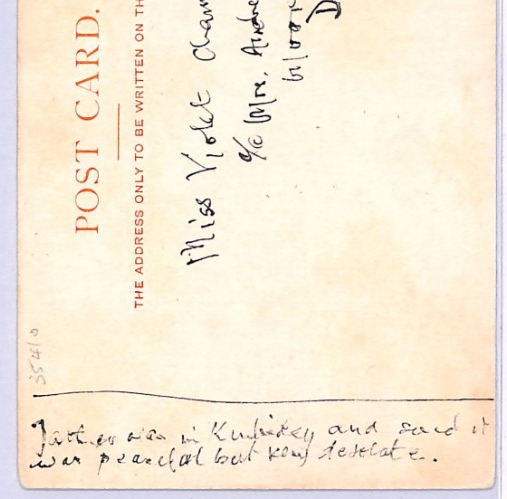 POST CARD.
THE ADDRESS ONLY TO BE WRITTEN ON TH
Miss Violet Cham
c/o Mrs. Andre
D
35410
Father was in and said it
was peaceful but very desolate.